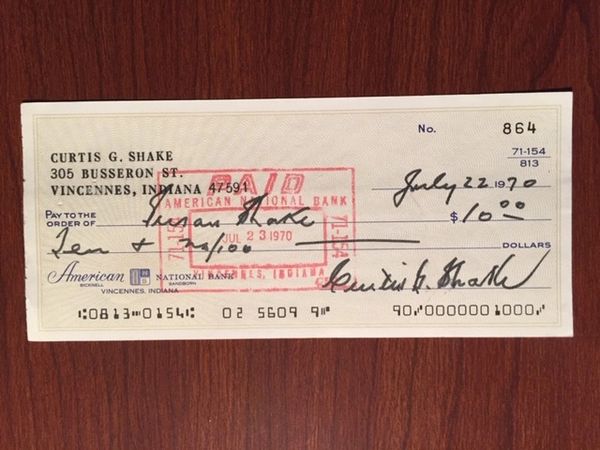 No. 864
71-154
813
CURTIS G. SHAKE
305 BUSSERON ST.
VINCENNES, INDIANA 47591
PAID
AMERICAN NATIONAL BANK
71-154
JUL 23 1970
71-154
VINCENNES, INDIANA
July 22 1970
PAY TO THE
ORDER OF Susan Shake $ 10 00
Ten & no/100 DOLLARS
American NATIONAL BANK
BICKNELL SANDBORN
VINCENNES, INDIANA
Curtis G. Shake
⑆0813⑉0154⑆ 02 5609 9⑈ 90 ⑈0000001000⑈